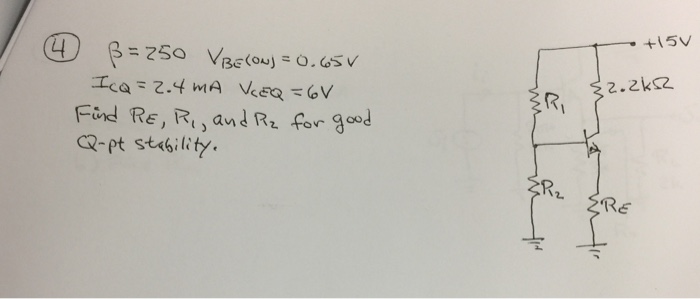 ④ β=250 VBE(ON)=0.65V
ICQ=2.4 mA VCEQ=6V
Find RE, R1, and R2 for good
Q-pt stability.
+15V
R1
2.2kΩ
R2
RE